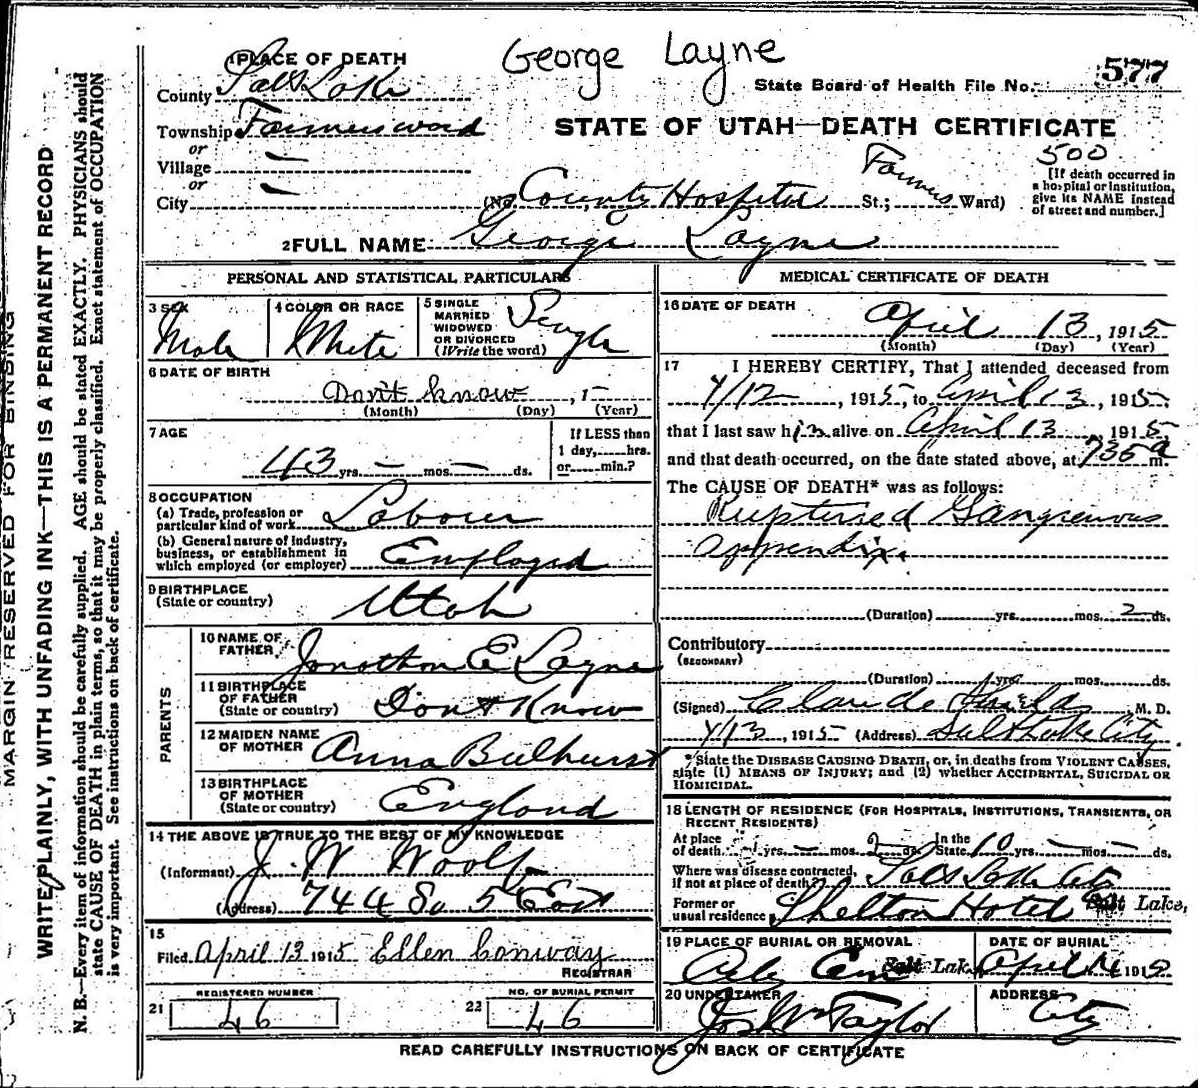 George Layne
1 PLACE OF DEATH
State Board of Health File No. 577
County Salt Lake
Township Farmers ward
STATE OF UTAH—DEATH CERTIFICATE
or
Village —
or —
City (No. County Hospital St.; Farmers Ward)
500
[If death occurred in
a hospital or institution,
give its NAME instead
of street and number.]
2 FULL NAME George Layne
PERSONAL AND STATISTICAL PARTICULARS
3 SEX Male
4 COLOR OR RACE White
5 SINGLE
MARRIED
WIDOWED
OR DIVORCED
(Write the word) Single
6 DATE OF BIRTH
Don't know, 1
(Month) (Day) (Year)
7 AGE
43 yrs. — mos. — ds.
If LESS than
1 day, hrs.
or min.?
8 OCCUPATION
(a) Trade, profession or
particular kind of work Labour
(b) General nature of industry,
business, or establishment in
which employed (or employer) Employed
9 BIRTHPLACE
(State or country) Utah
PARENTS
10 NAME OF
FATHER Jonathon E Layne
11 BIRTHPLACE
OF FATHER
(State or country) Dont Know
12 MAIDEN NAME
OF MOTHER Anna Bulhurst
13 BIRTHPLACE
OF MOTHER
(State or country) England
14 THE ABOVE IS TRUE TO THE BEST OF MY KNOWLEDGE
(Informant) J. W. Woolf
(Address) 744 So 5 East
15
Filed April 13 1915 Ellen Conway
REGISTRAR
21 REGISTERED NUMBER
46
22 NO. OF BURIAL PERMIT
46
MEDICAL CERTIFICATE OF DEATH
16 DATE OF DEATH
April 13, 1915
(Month) (Day) (Year)
17 I HEREBY CERTIFY, That I attended deceased from
4/12, 1915, to April 13, 1915,
that I last saw him alive on April 13 1915
and that death occurred, on the date stated above, at 735 a m.
The CAUSE OF DEATH* was as follows:
Ruptured Gangrenous
appendix.
(Duration) yrs. mos. 2 ds.
Contributory
(SECONDARY)
(Duration) yrs. mos. ds.
(Signed) Claude Shields, M. D.
4/13, 1915 (Address) Salt Lake City
*State the DISEASE CAUSING DEATH, or, in deaths from VIOLENT CAUSES,
state (1) MEANS OF INJURY; and (2) whether ACCIDENTAL, SUICIDAL OR
HOMICIDAL.
18 LENGTH OF RESIDENCE (FOR HOSPITALS, INSTITUTIONS, TRANSIENTS, OR
RECENT RESIDENTS)
At place
of death yrs. — mos. 2 ds. In the
State 10 yrs. — mos. — ds.
Where was disease contracted,
if not at place of death? Salt Lake City
Former or
usual residence Shelton Hotel Salt Lake,
19 PLACE OF BURIAL OR REMOVAL
Cem Salt Lake
DATE OF BURIAL
April 14 1915
20 UNDERTAKER
Jos Wm Taylor
ADDRESS
City
READ CAREFULLY INSTRUCTIONS ON BACK OF CERTIFICATE
MARGIN RESERVED FOR BINDING
WRITE PLAINLY, WITH UNFADING INK—THIS IS A PERMANENT RECORD
N. B.—Every item of information should be carefully supplied. AGE should be stated EXACTLY. PHYSICIANS should
state CAUSE OF DEATH in plain terms, so that it may be properly classified. Exact statement of OCCUPATION
is very important. See instructions on back of certificate.